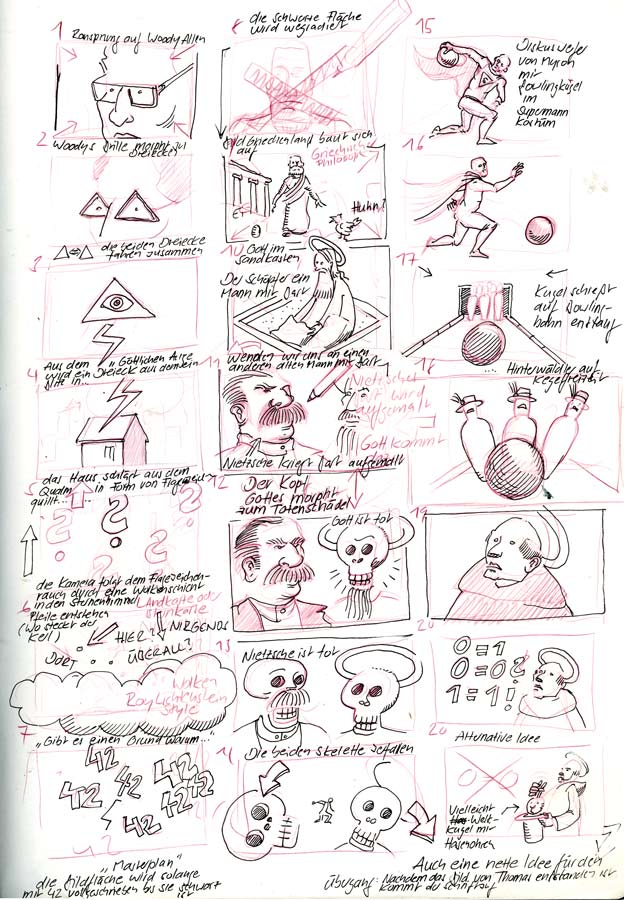 1 Ransprung auf Woody Allen
2
Woodys Brille morpht zu
Dreiecken
3. die beiden Dreiecke
fahren zusammen
4 Aus dem "Göttlichen Auge
wird ein Dreieck aus dem ein
Blitz in...
das Haus schlägt aus dem
5 Qualm in Form von Fragezeichen
quillt...
?
?
?
?
die Kamera folgt dem Fragezeichen-
rauch durch eine Wolkenschicht
in den Sternenhimmel
Landkarte oder
Sternkarte
6 Pfeile entstehen
(Wo steckt der
Kerl)
HIER?
NIRGENDS
DORT
ÜBERALL?
Wolken
Roy Lichtenstein
Style
7
"Gibt es einen Grund warum..."
42
42
42
42
42
42
42
42
"Masterplan"
die Bildfläche wird solange
mit 42 vollgeschrieben bis sie schwarz
ist
8 die schwarze Fläche
wird wegradiert
Bild Griechenland baut sich
auf
Griechische
Philosophie
Huhn?
Ei
10 Gott im
Sandkasten
Der Schöpfer ein
Mann mit Bart
11 Wenden wir uns an einen
anderen alten Mann mit Bart
Nietzsches
Bart wird
aufgemalt
Gott kommt
Nietzsche kriegt Bart aufgemalt
12 Der Kopf
Gottes morpht
zum Totenschädel
Gott ist tot
13 Nietzsche ist tot
14 Die beiden Skelette
15
Diskuswerfer
von Myron
mit
Bowlingkugel
im
Supermann
Kostüm
16
17
Kugel schießt
auf Bowling-
bahn entlang
18 ... Hinterwäldler auf
Kegelfreizeit
19
20
0=1
0=0?
1=1!
20
Alternative Idee
Vielleicht
Welt-
kugel mit
Hasenohren
Auch eine nette Idee für den
Übergang: Nachdem das Bild von Thomas entstanden ist
kommt du